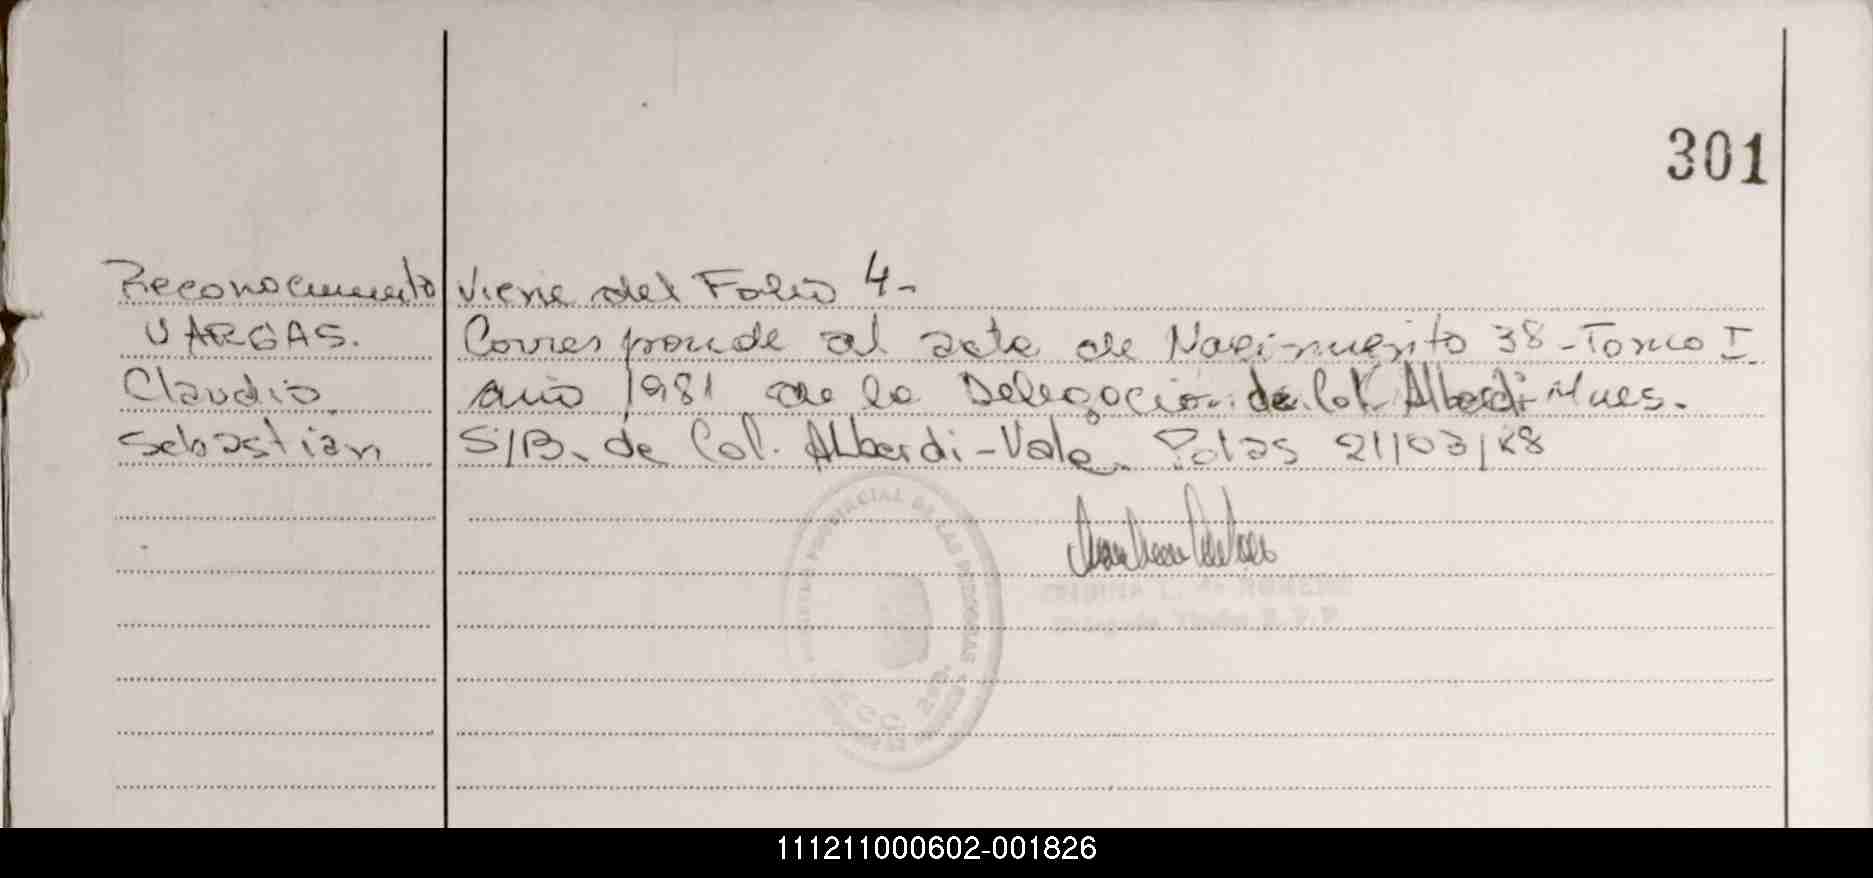 301
Reconocimiento
VARGAS.
Claudio
Sebastian
Viene del Folio 4-
Corresponde al acta de Nacimiento 38-Tomo I
año 1981 de la Delegación de Col. Alberdi-Mnes.
S/B. de Col. Alberdi-Vale. Pdas 21/03/88
111211000602-001826